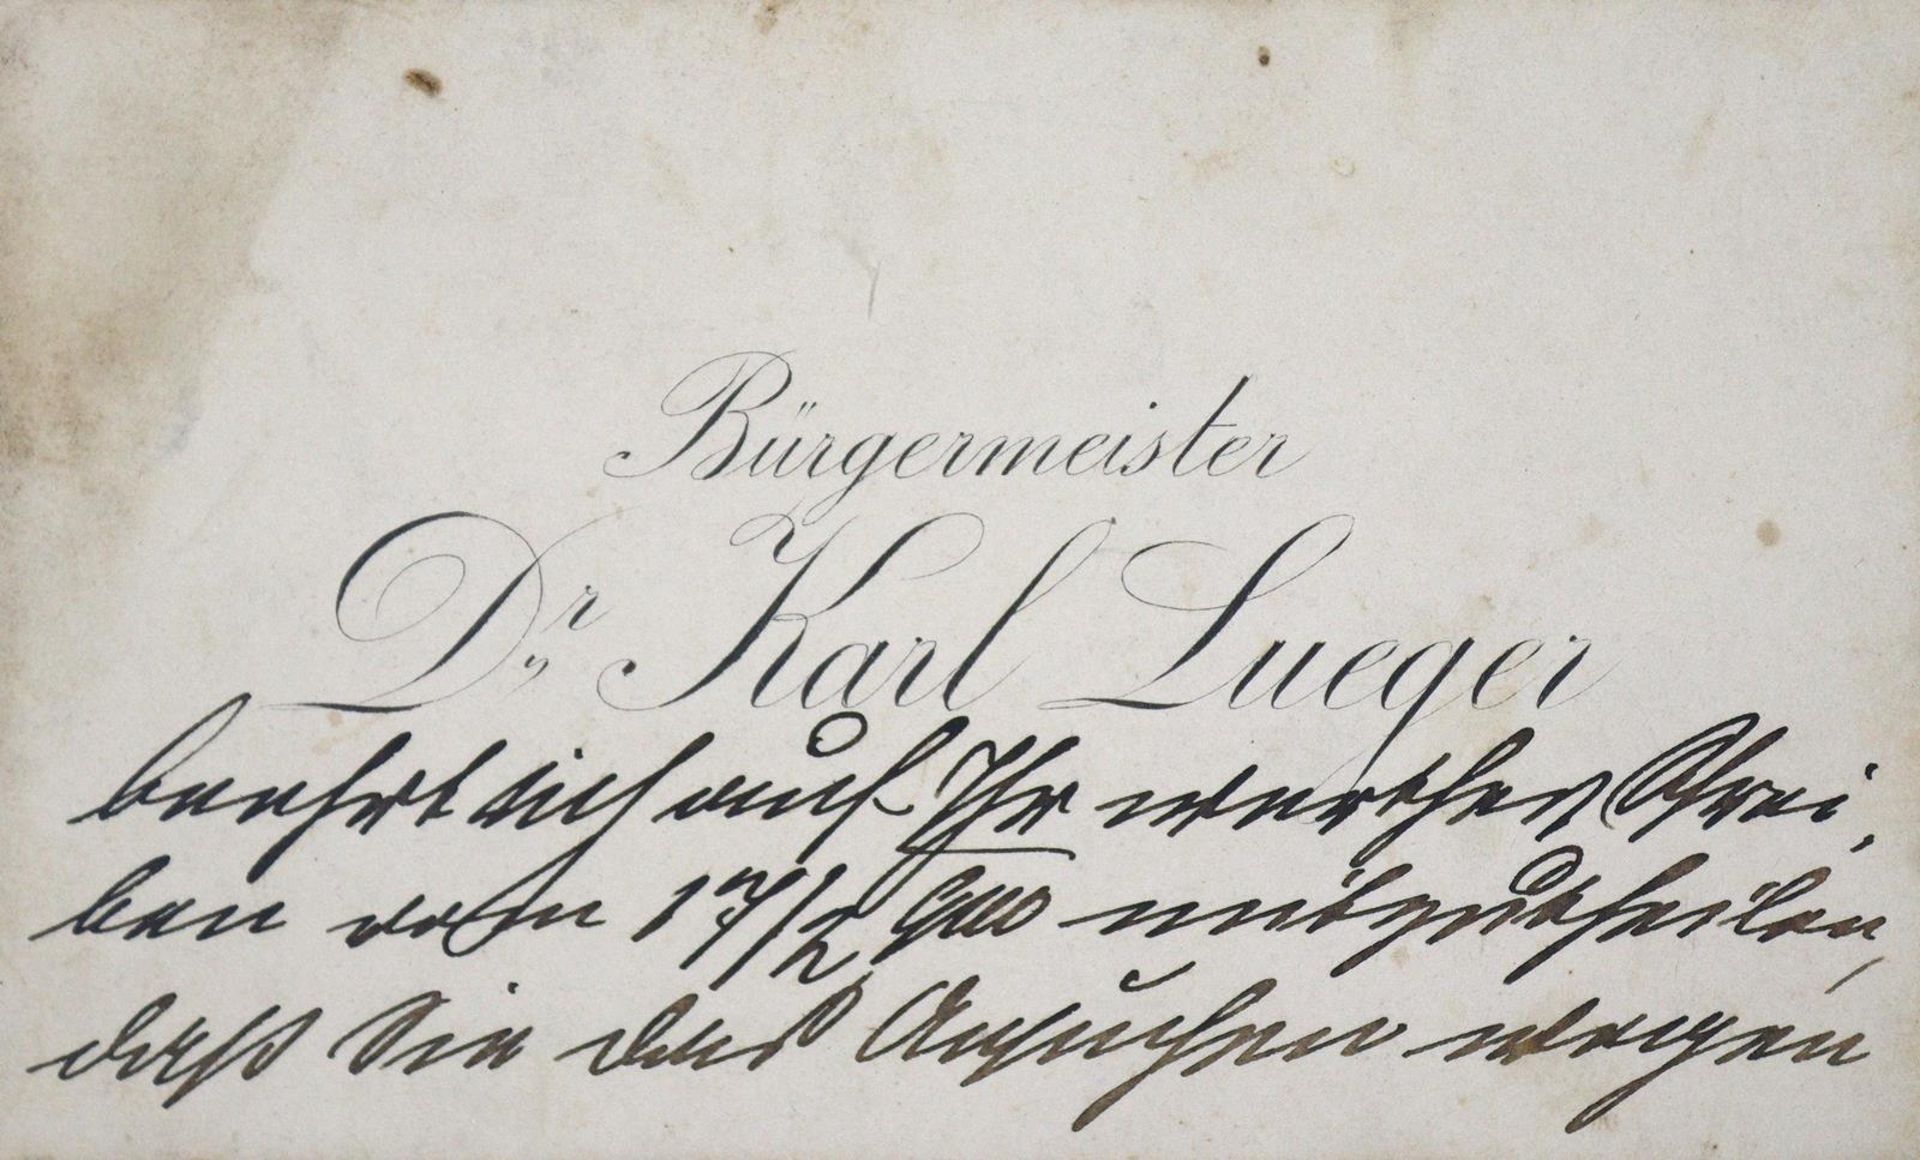 Bürgermeister
Dr. Karl Lueger
beehrt sich auf Ihr werthes Schrei-
ben vom 17/2 900 mitzutheilen,
daß Sie das Ansuchen wegen